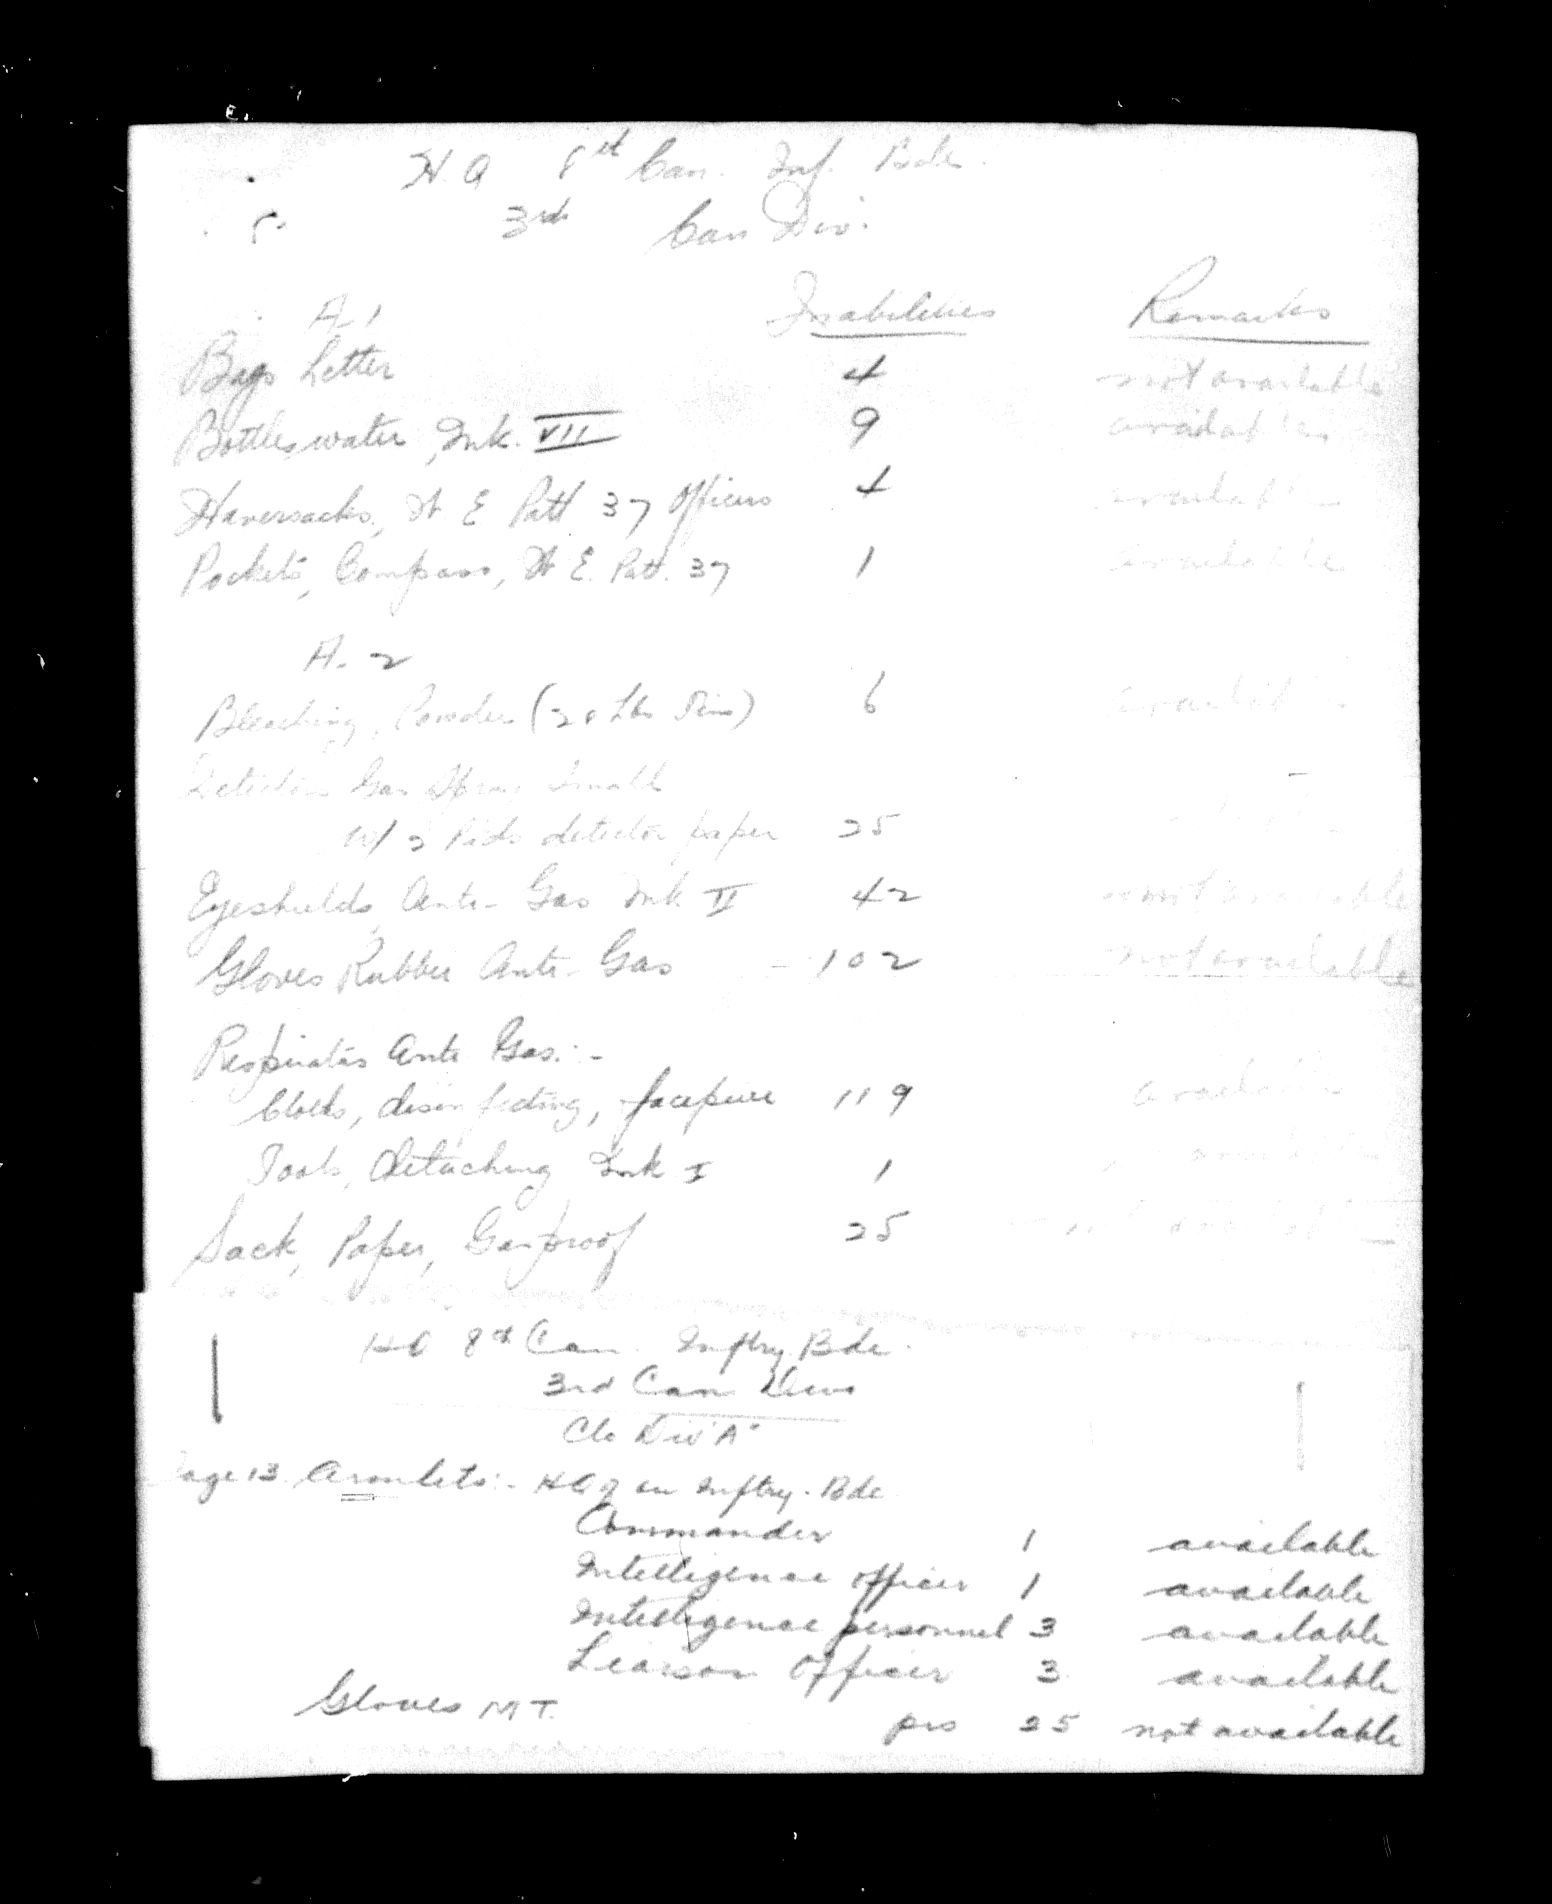 H.Q 8th Can. Inf. Bde.
3rd Can Div.
A-1 Inabilities Remarks
Bags Letter 4 not available
Bottles, water, Mk. VII 9 available
Haversacks, W E Patt 37 Officers 4 available
Pockets, Compass, W E. Patt. 37 1 available
A-2
Bleaching, Powder (20 Lbs Tins) 6 available
Detectors Gas Spray Small
W/ 2 Pads detector paper 25
Eyeshields, Anti-Gas Mk II 42 not available
Gloves Rubber Anti-Gas - 102 not available
Respirators Anti Gas:-
Cloths, disinfecting, facepiece 119 available
Tools, detaching Mk I 1 available
Sack, Paper, Gasproof 25 available
HQ 8th Can. Inftry. Bde.
3rd Can Divn
Clo Div "A"
Page 13 Armlets:- HQ of an Inftry. Bde
Commander 1 available
Intelligence officer 1 available
Intelligence personnel 3 available
Liaison officer 3 available
Gloves M T. prs 25 not available